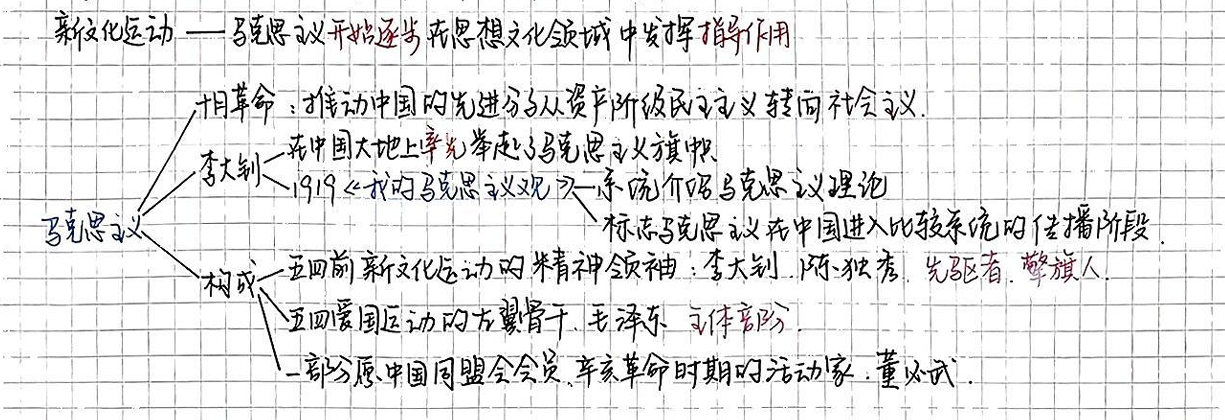 新文化运动——马克思主义开始逐步在思想文化领域中发挥指导作用
十月革命：推动中国的先进分子从资产阶级民主主义转向社会主义.
李大钊 在中国大地上率先举起了马克思主义旗帜
1919《我的马克思主义观》—系统介绍马克思主义理论
标志马克思主义在中国进入比较系统的传播阶段.
马克思主义
构成 五四前新文化运动的精神领袖：李大钊.陈独秀.先驱者.擎旗人.
五四爱国运动的左翼骨干.毛泽东 主体部分.
一部分原中国同盟会会员.辛亥革命时期的活动家.董必武.